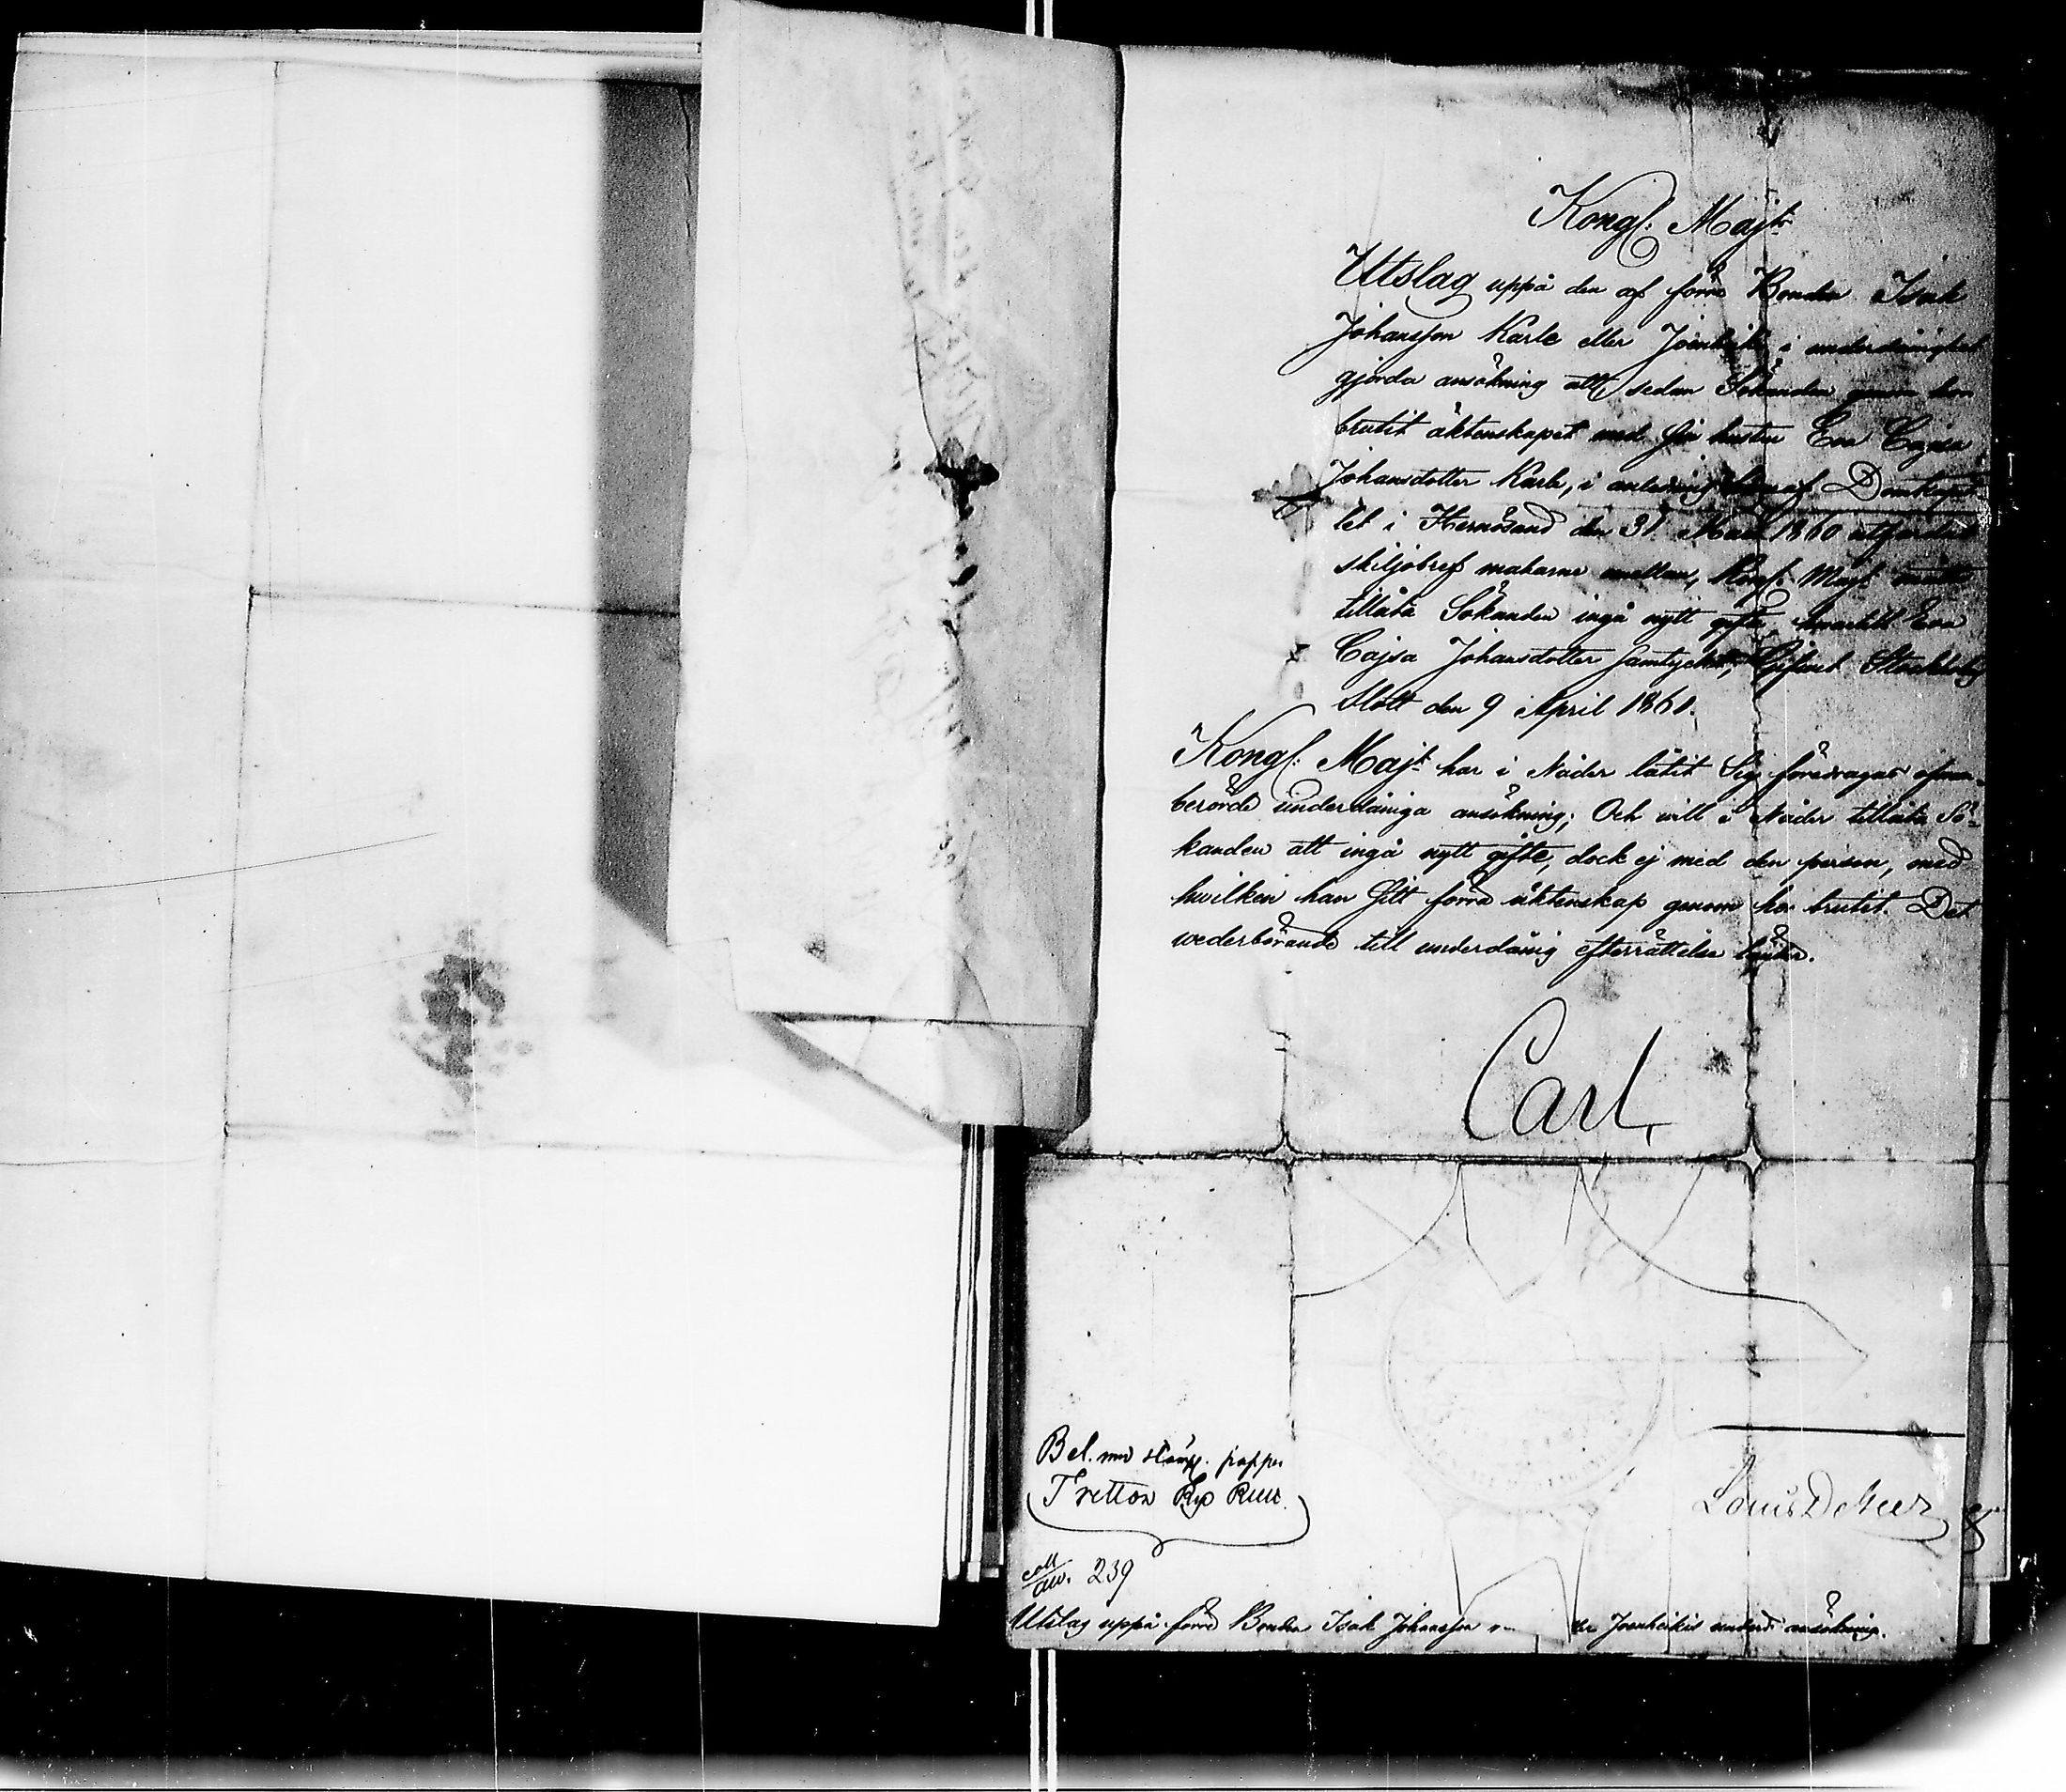 Kongl: Majts
Utslag uppå den af förre Bonden Isak
Johansson Karle eller Joenheiki i underdånighet
gjorda ansökning att, sedan Sökanden genom hor
brutit äktenskapet med sin hustru Eva Cajsa
Johansdotter Karle, i anledning hvaraf Domkapit-
let i Hernösand den 31 Mars 1860 utfärdat
skiljobref makarne emellan, Kongl. Majt måtte
tillåta Sökanden ingå nytt gifte, hvartill Eva
Cajsa Johansdotter samtyckt; Gifvet Stockholms
Slott den 9 April 1861.
Kongl: Majt har i Nåder låtit Sig föredragas ofvan-
berörde underdåniga ansökning; Och will i Nåder tillåta Sö-
kanden att ingå nytt gifte, dock ej med den person, med
hwilken han sitt förra äktenskap genom hor brutit. Det
wederbörande till underdånig efterrättelse länder.
Carl
Bel. med stämp. papper
Tretton Rd Rmt
Louis De Geer
239
Utslag uppå förre Bonden Isak Johansson Joenheikis underd. ansökning.